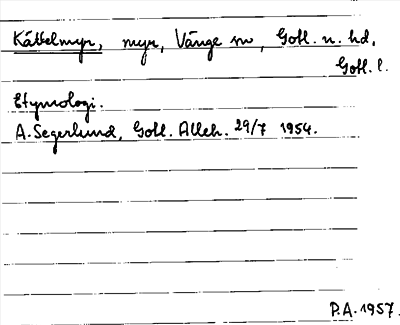 Kättelmyr, myr, Vänge sn, Gotl. n. hd,
Gotl. l.
Etymologi.
A. Segerlund, Gotl. Alleh. 29/7 1954.
P.A. 1957.